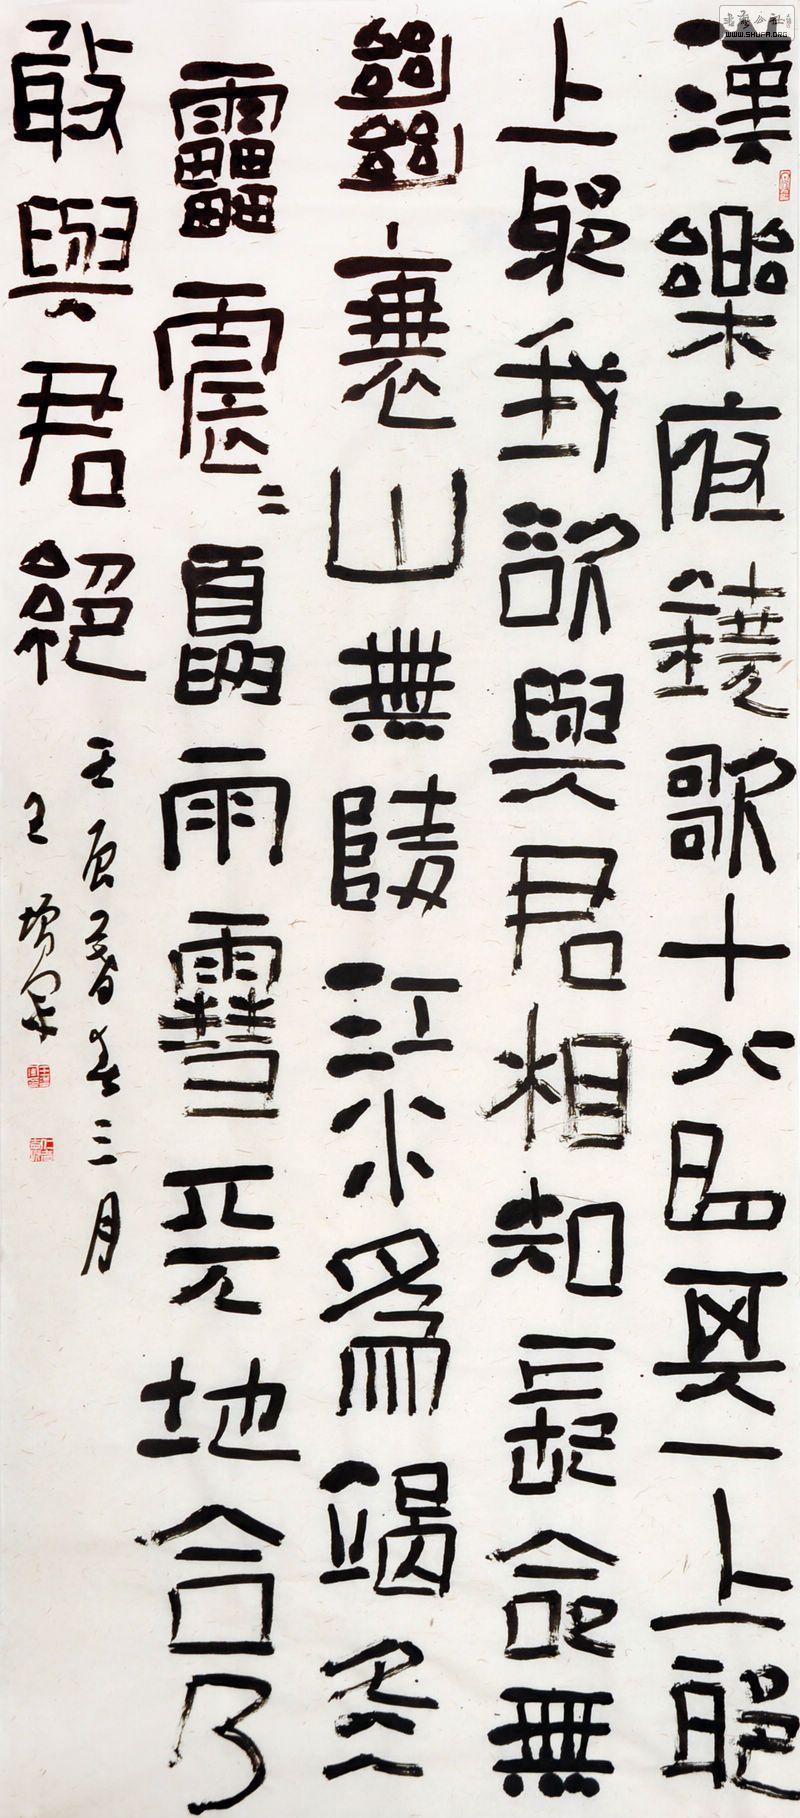 漢樂府鐃歌十八曲其一上邪
上邪我欲與君相知長命無
絕衰山無陵江水為竭冬
雷震震夏雨雪天地合乃
敢與君絕
壬辰暮春三月
王
WWW.SHUFA.ORG